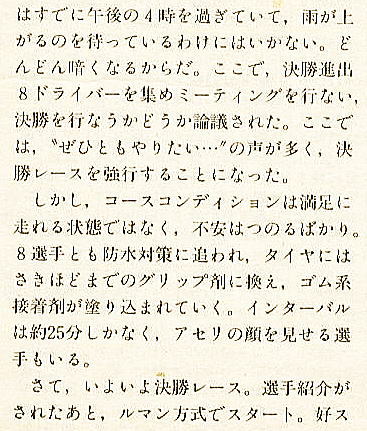 はすでに午後の4時を過ぎていて，雨が上
がるのを待っているわけにはいかない。ど
んどん暗くなるからだ。ここで，決勝進出
8ドライバーを集めミーティングを行ない，
決勝を行なうかどうか論議された。ここで
は，〝ぜひともやりたい…〟の声が多く，決
勝レースを強行することになった。
しかし，コースコンディションは満足に
走れる状態ではなく，不安はつのるばかり。
8選手とも防水対策に追われ，タイヤには
さきほどまでのグリップ剤に換え，ゴム系
接着剤が塗り込まれていく。インターバル
は約25分しかなく，アセリの顔を見せる選
手もいる。
さて，いよいよ決勝レース。選手紹介が
されたあと，ルマン方式でスタート。好ス